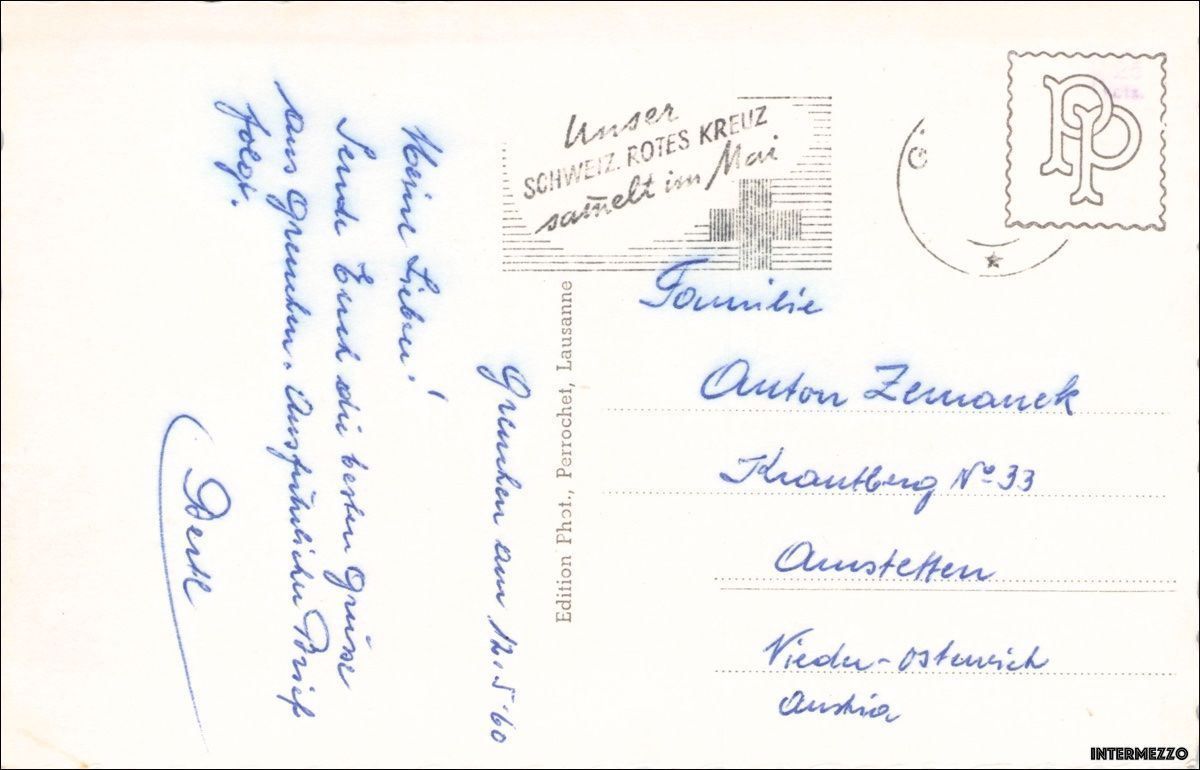 Unser
SCHWEIZ. ROTES KREUZ
sam̄elt im Mai
PP
Grenchen am 12.5 60
Meine Lieben!
Sende Euch die besten Grüsse
aus Grenchen. Ausführlicher Brief
folgt.
Edition Phot., Perrochet, Lausanne
Familie
Anton Zemanek
Krautberg No 33
Amstetten
Nieder-Österreich
Austria
INTERMEZZO